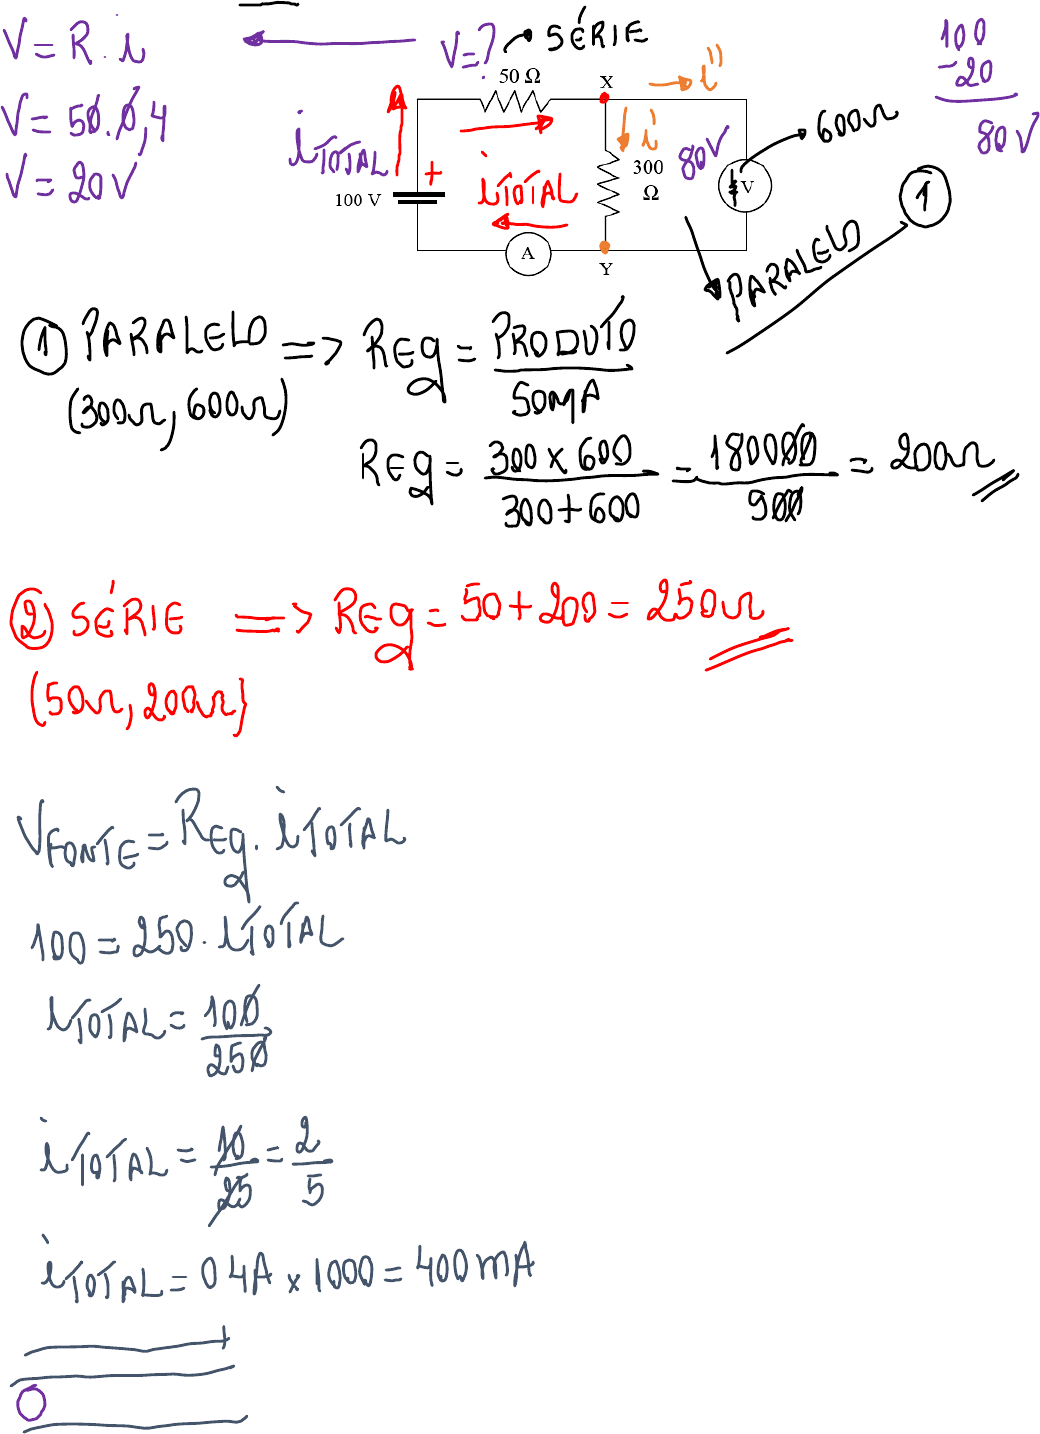 V = R . i
V = 50 . 0,4
V = 20V
V=?
SÉRIE
50 Ω
X
i''
i'
100
-20
80V
i TOTAL
+
i TOTAL
300
Ω
80V
600Ω
V
100 V
A
Y
PARALELO
1
1 PARALELO => REq = PRODUTO
SOMA
(300Ω, 600Ω)
REq = 300 x 600 = 180000 = 200Ω
300+600 900
2 SÉRIE => REq = 50+200 = 250Ω
(50Ω, 200Ω)
VFONTE = REq. i TOTAL
100 = 250 . i TOTAL
i TOTAL = 100
250
i TOTAL = 10 = 2
25 5
i TOTAL = 0 4A x 1000 = 400 mA